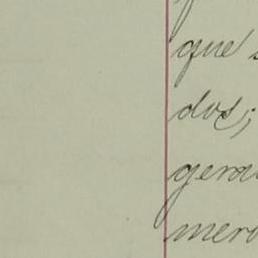 que
dos;
gera
mer